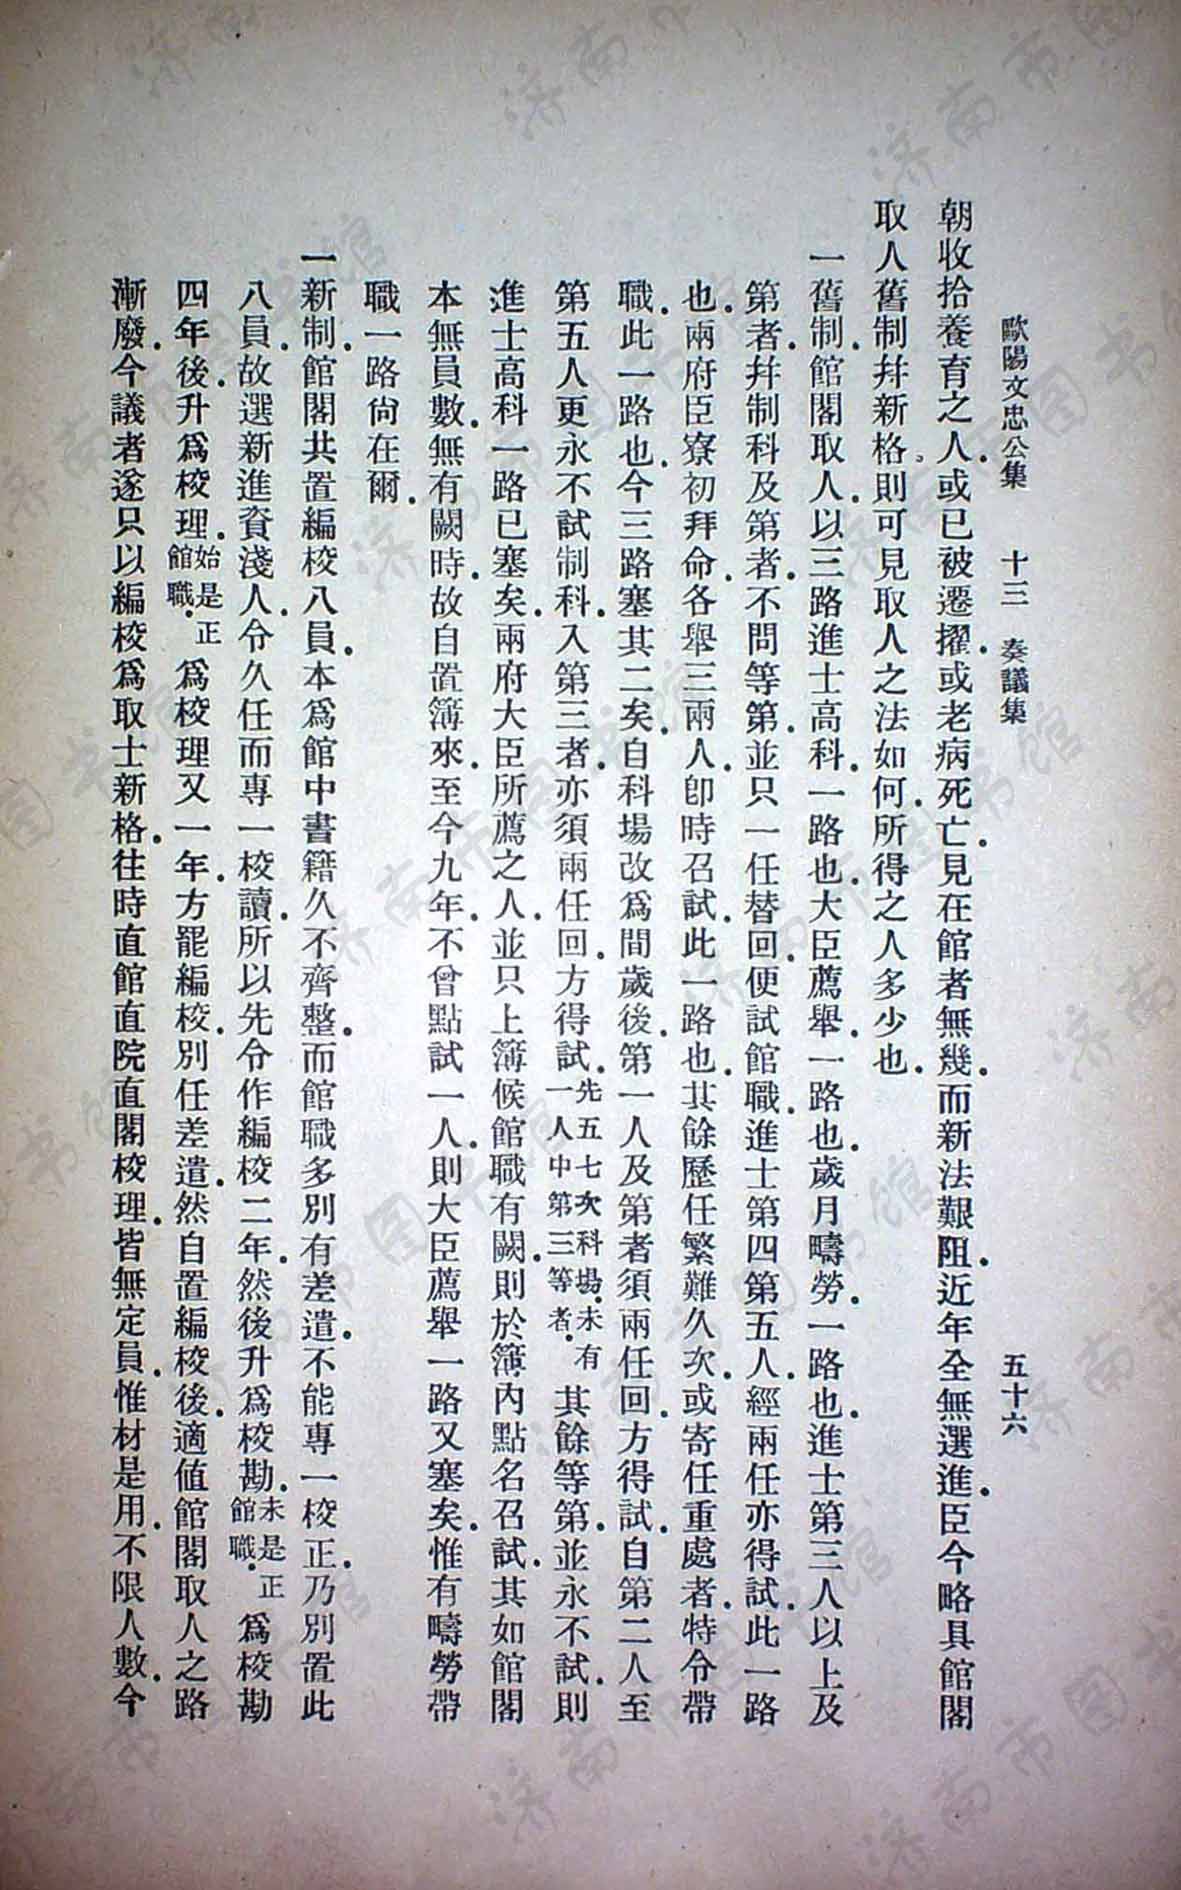 歐陽文忠公集　十三　奏議集　五十六
朝收拾養育之人.或已被遷擢.或老病死亡.見在館者無幾.而新法艱阻.近年全無選進.臣今略具館閣
取人舊制幷新格.則可見取人之法如何.所得之人多少也.
一舊制.館閣取人.以三路進士高科.一路也.大臣薦舉.一路也.歲月疇勞.一路也.進士第三人以上及
第者.幷制科及第者.不問等第.並只一任替回.便試館職.進士第四第五人.經兩任亦得試.此一路
也.兩府臣寮初拜命.各舉三兩人.卽時召試.此一路也.其餘歷任繁難久次.或寄任重處者.特令帶
職.此一路也.今三路塞其二矣.自科場改爲間歲後.第一人及第者.須兩任回.方得試.自第二人至
第五人.更永不試.制科.入第三者.亦須兩任回.方得試.先五七次科場.未有一人中第三等者.其餘等第.並永不試.則
進士高科一路已塞矣.兩府大臣所薦之人.並只上簿候館職有闕.則於簿內點名召試.其如館閣
本無員數.無有闕時.故自置簿來.至今九年.不曾點試一人.則大臣薦舉一路又塞矣.惟有疇勞帶
職一路尙在爾.
一新制.館閣共置編校八員.本爲館中書籍久不齊整.而館職多別有差遣.不能專一校正.乃別置此
八員.故選新進資淺人.令久任而專一校讀.所以先令作編校二年.然後升爲校勘.未是正館職.爲校勘
四年後.升爲校理.始是正館職.爲校理又一年.方罷編校.別任差遣.然自置編校後.適値館閣取人之路
漸廢.今議者遂只以編校爲取士新格.往時直館直院直閣校理.皆無定員.惟材是用.不限人數.今
济南市图书馆